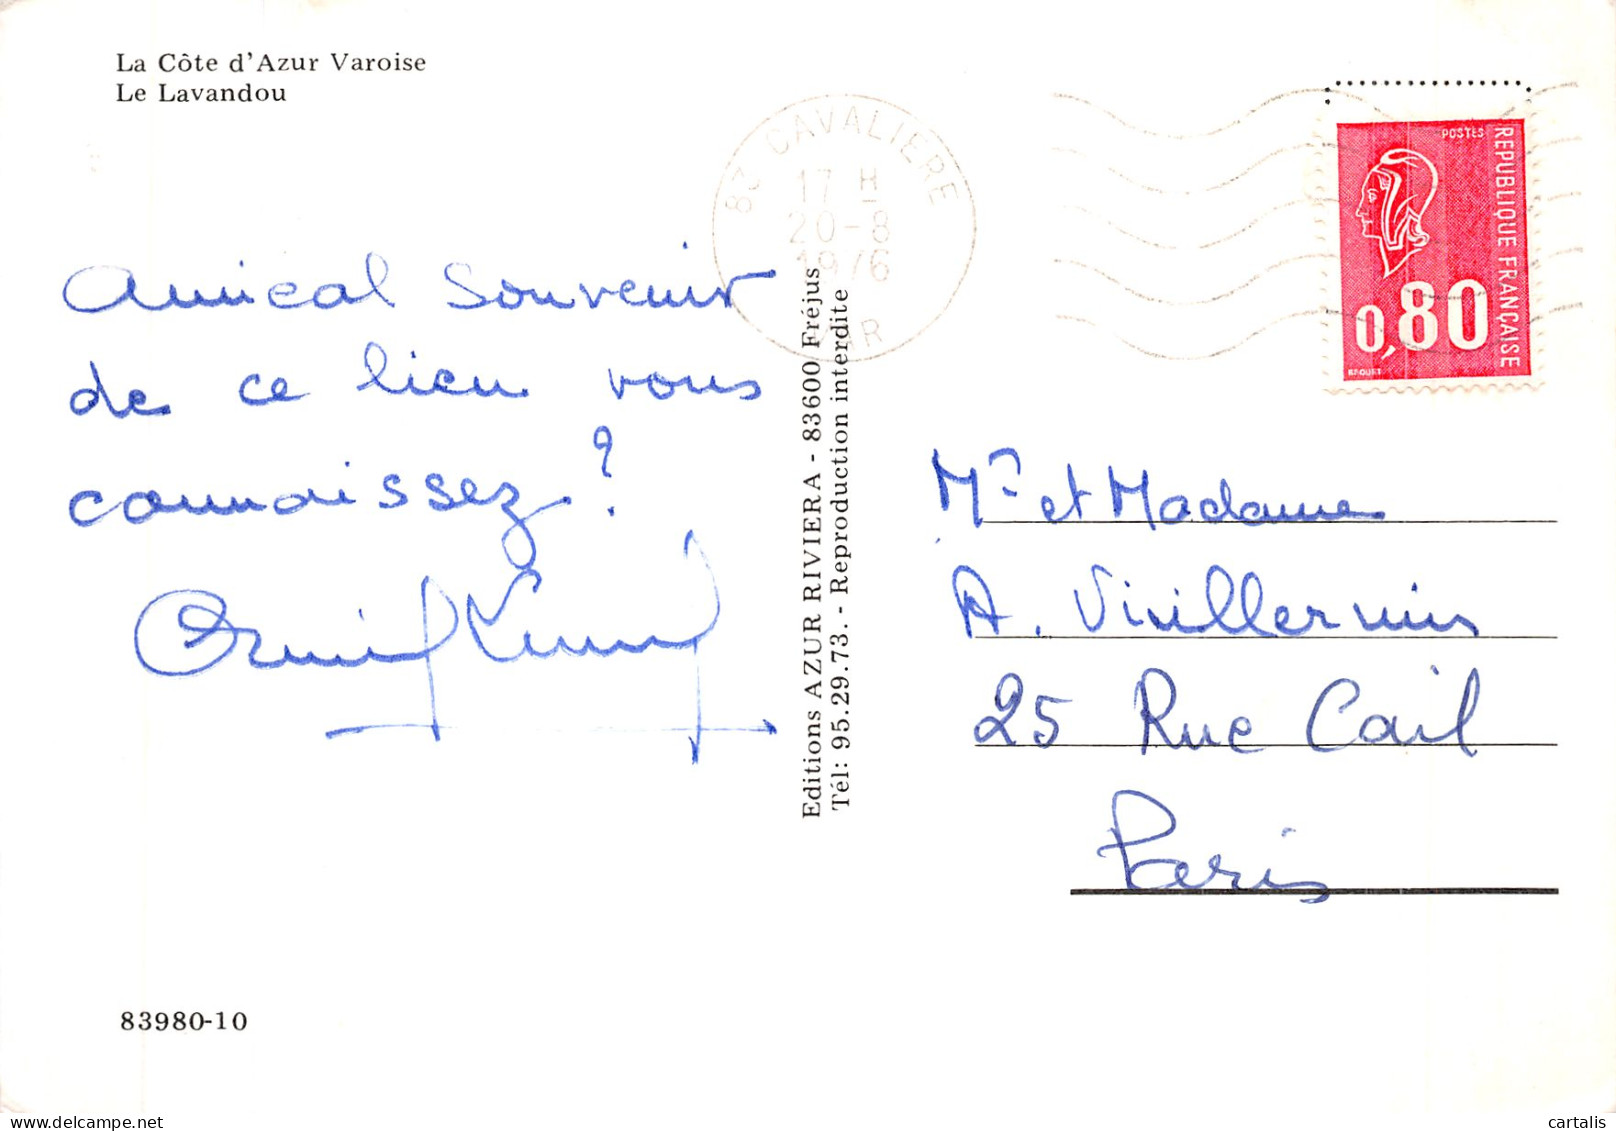 La Côte d'Azur Varoise
Le Lavandou
83 CAVALIERE
17 H
20-8
1976
VAR
POSTES
REPUBLIQUE FRANÇAISE
0,80
BEQUET
Amical Souvenir
de ce lieu vous
connaissez ?
Editions AZUR RIVIERA - 83600 Fréjus
Tél: 95.29.73. - Reproduction interdite
Mr et Madame
A.
25 Rue Cail
Paris
83980-10
cartalis